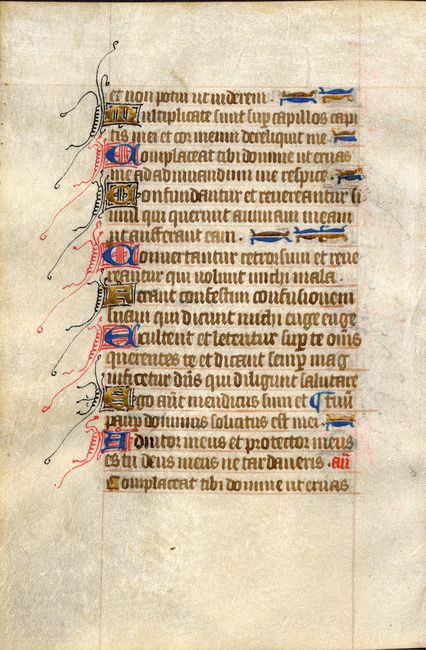 et non potui ut viderem.
Multiplicate sunt sup capillos capi
tis mei et cor meum dereliquit me
Complaceat tibi domine ut eruas
me ad adiuvandum me respice.
Confundantur et revereantur si
mul qui querunt animam meam
ut aufferant eam.
Convertantur retrorsum et reve
reantur qui volunt michi mala.
Ferant confestim confusionem
suam qui dicunt michi euge euge
Exultent et letentur sup te om̄s
querentes te et dicant semp mag
nificetur dn̄s qui diligunt salutare
Ego aut̄ mendicus sum et tuū
paup dominus solicitus est mei
Adiutor meus et protector meus
es tu deus meus ne tardaveris. añ
Complaceat tibi domine ut eruas